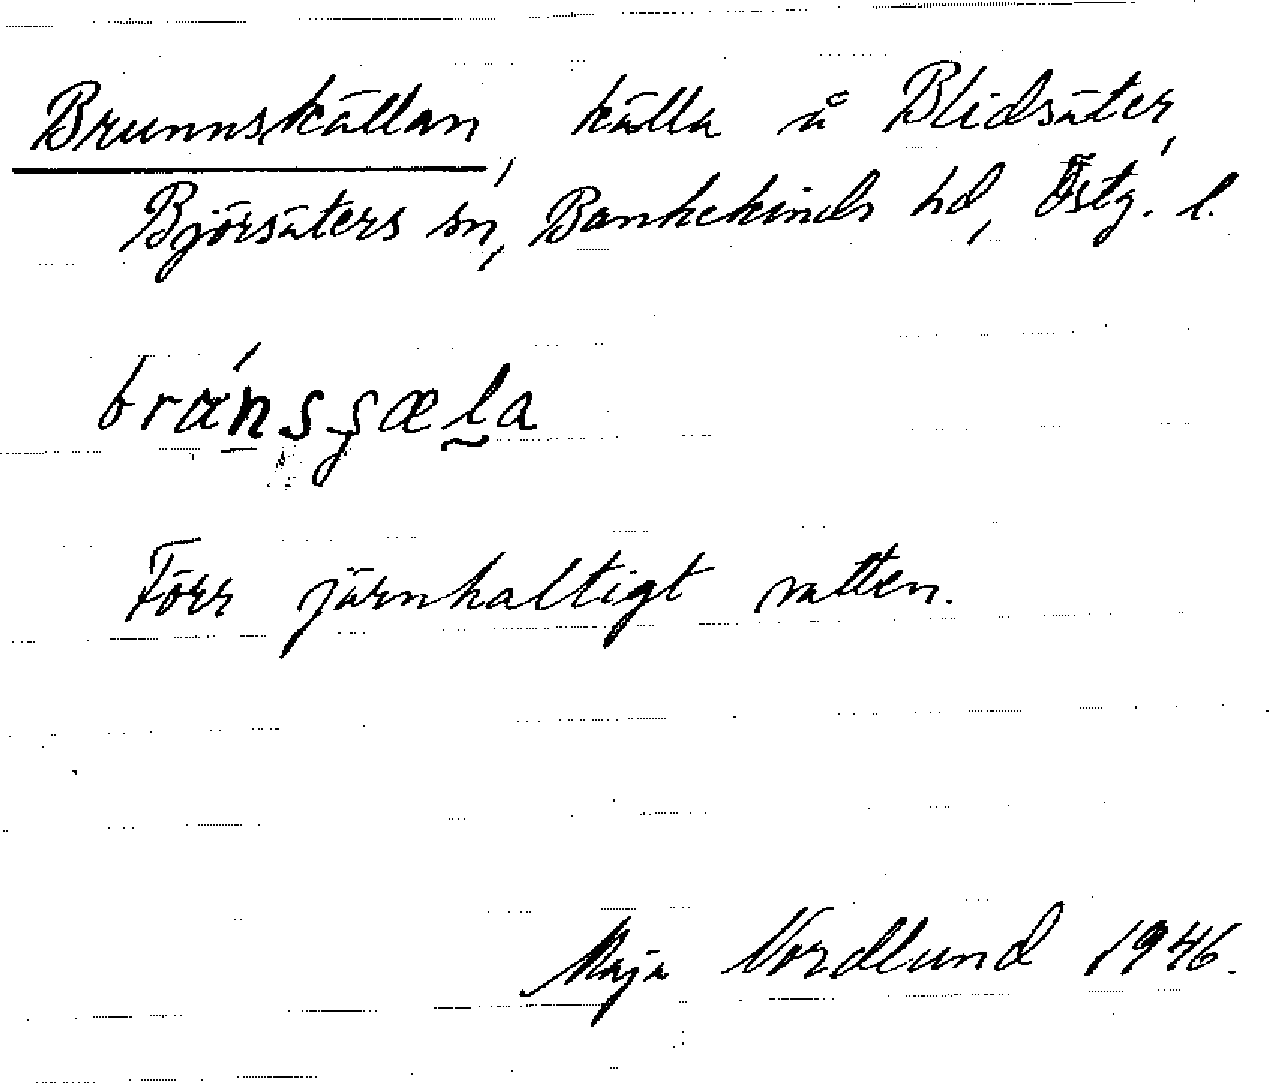 Brunnskällan, källa å Blidsäter,
Björsäters sn, Bankekinds hd, Östg. l.
Förr järnhaltigt vatten.
Maja Nordlund 1946.